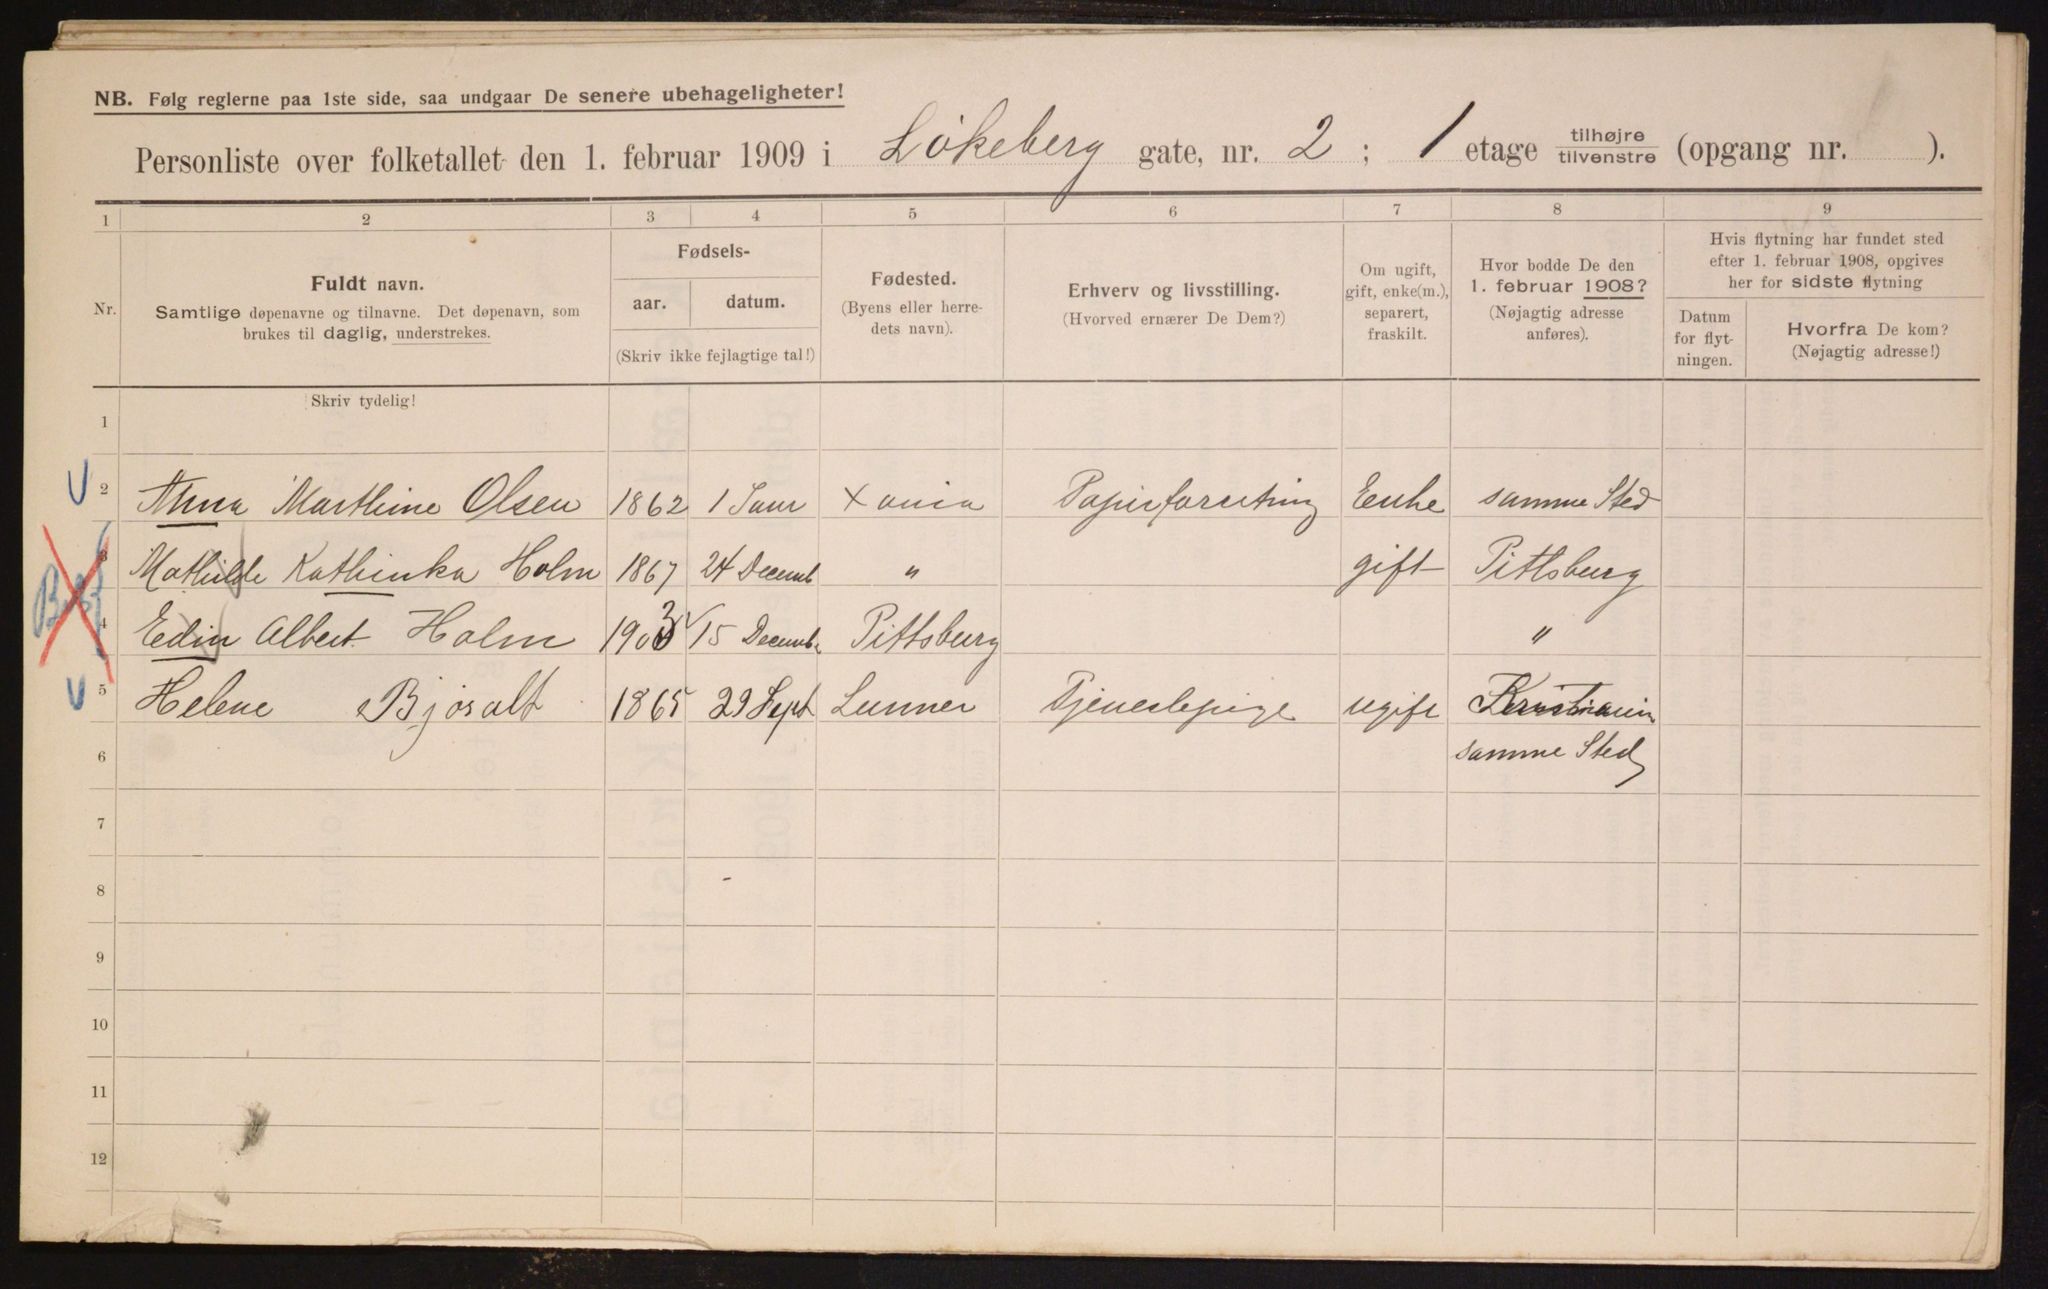 NB. Følg reglerne paa 1ste side, saa undgaar De senere ubehageligheter!
Personliste over folketallet den 1. februar 1909 i Lökeberg gate, nr. 2 ; 1 etage tilhøjre / tilvenstre (opgang nr. ).
1 2 3 4 5 6 7 8 9
Nr.
Fuldt navn.
Samtlige døpenavne og tilnavne. Det døpenavn, som
brukes til daglig, understrekes.
Fødsels-
aar. datum.
(Skriv ikke fejlagtige tal!)
Fødested.
(Byens eller herre-
dets navn).
Erhverv og livsstilling.
(Hvorved ernærer De Dem?)
Om ugift,
gift, enke(m.),
separert,
fraskilt.
Hvor bodde De den
1. februar 1908?
(Nøjagtig adresse
anføres).
Hvis flytning har fundet sted
efter 1. februar 1908, opgives
her for sidste flytning
Datum
for flyt-
ningen.
Hvorfra De kom?
(Nøjagtig adresse!)
Skriv tydelig!
1
2 Anna Marthine Olsen 1862 1 Janr Xania Papirforretning Enke samme Sted
3 Mathilde Kathinka Holm 1867 24 Decemb " gift Pittsburg
4 Edin Albert Holm 1903 15 Decemb. Pittsburg "
5 Helene Björalt 1865 29 Sept Lunner Tjenestepige ugift Kristiania
6 samme Sted
7
8
9
10
11
12